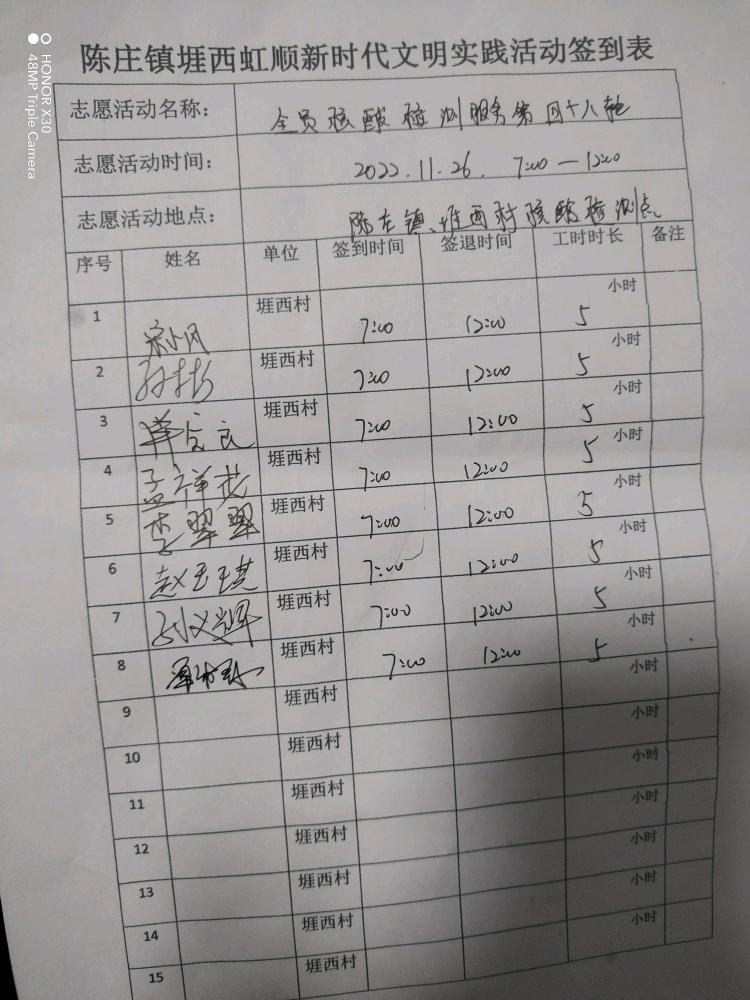 HONOR X30
48MP Triple Camera
陈庄镇堐西虹顺新时代文明实践活动签到表
志愿活动名称： 全员核酸检测服务第四十八轮
志愿活动时间： 2022.11.26. 7:00—12:00
志愿活动地点： 陈庄镇、堐西村核酸检测点
序号 姓名 单位 签到时间 签退时间 工时时长 备注
1 堐西村 7:00 12:00 5 小时
2 堐西村 7:00 12:00 5 小时
3 堐西村 7:00 12:00 5 小时
4 孟祥 堐西村 7:00 12:00 5 小时
5 李翠翠 堐西村 7:00 12:00 5 小时
6 赵玉琪 堐西村 7:00 12:00 5 小时
7 堐西村 7:00 12:00 5 小时
8 堐西村 7:00 12:00 5 小时
9 堐西村 小时
10 堐西村 小时
11 堐西村 小时
12 堐西村 小时
13 堐西村 小时
14 堐西村 小时
15 堐西村